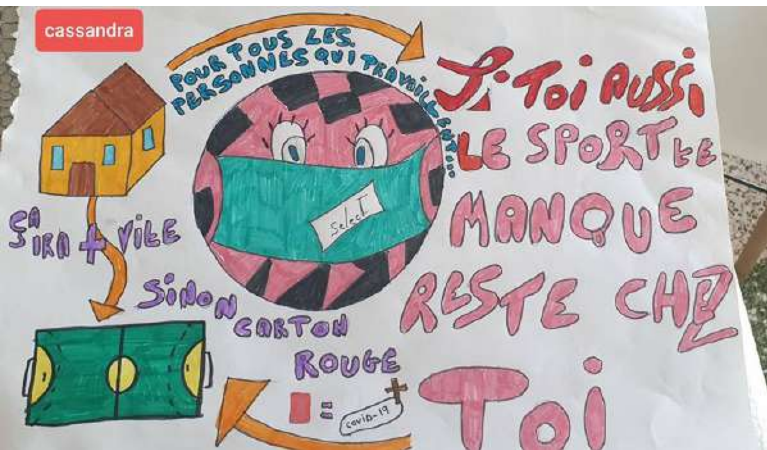 cassandra
POUR TOUS LES
PERSONNES QUI TRAVAILLENT...
Si Toi AUSSi
LE SPORT te
MANQUE
RESTE CHEZ
Toi
select
ÇA
IRA + VITE
SiNON
CARTON
ROUGE
= COVID-19